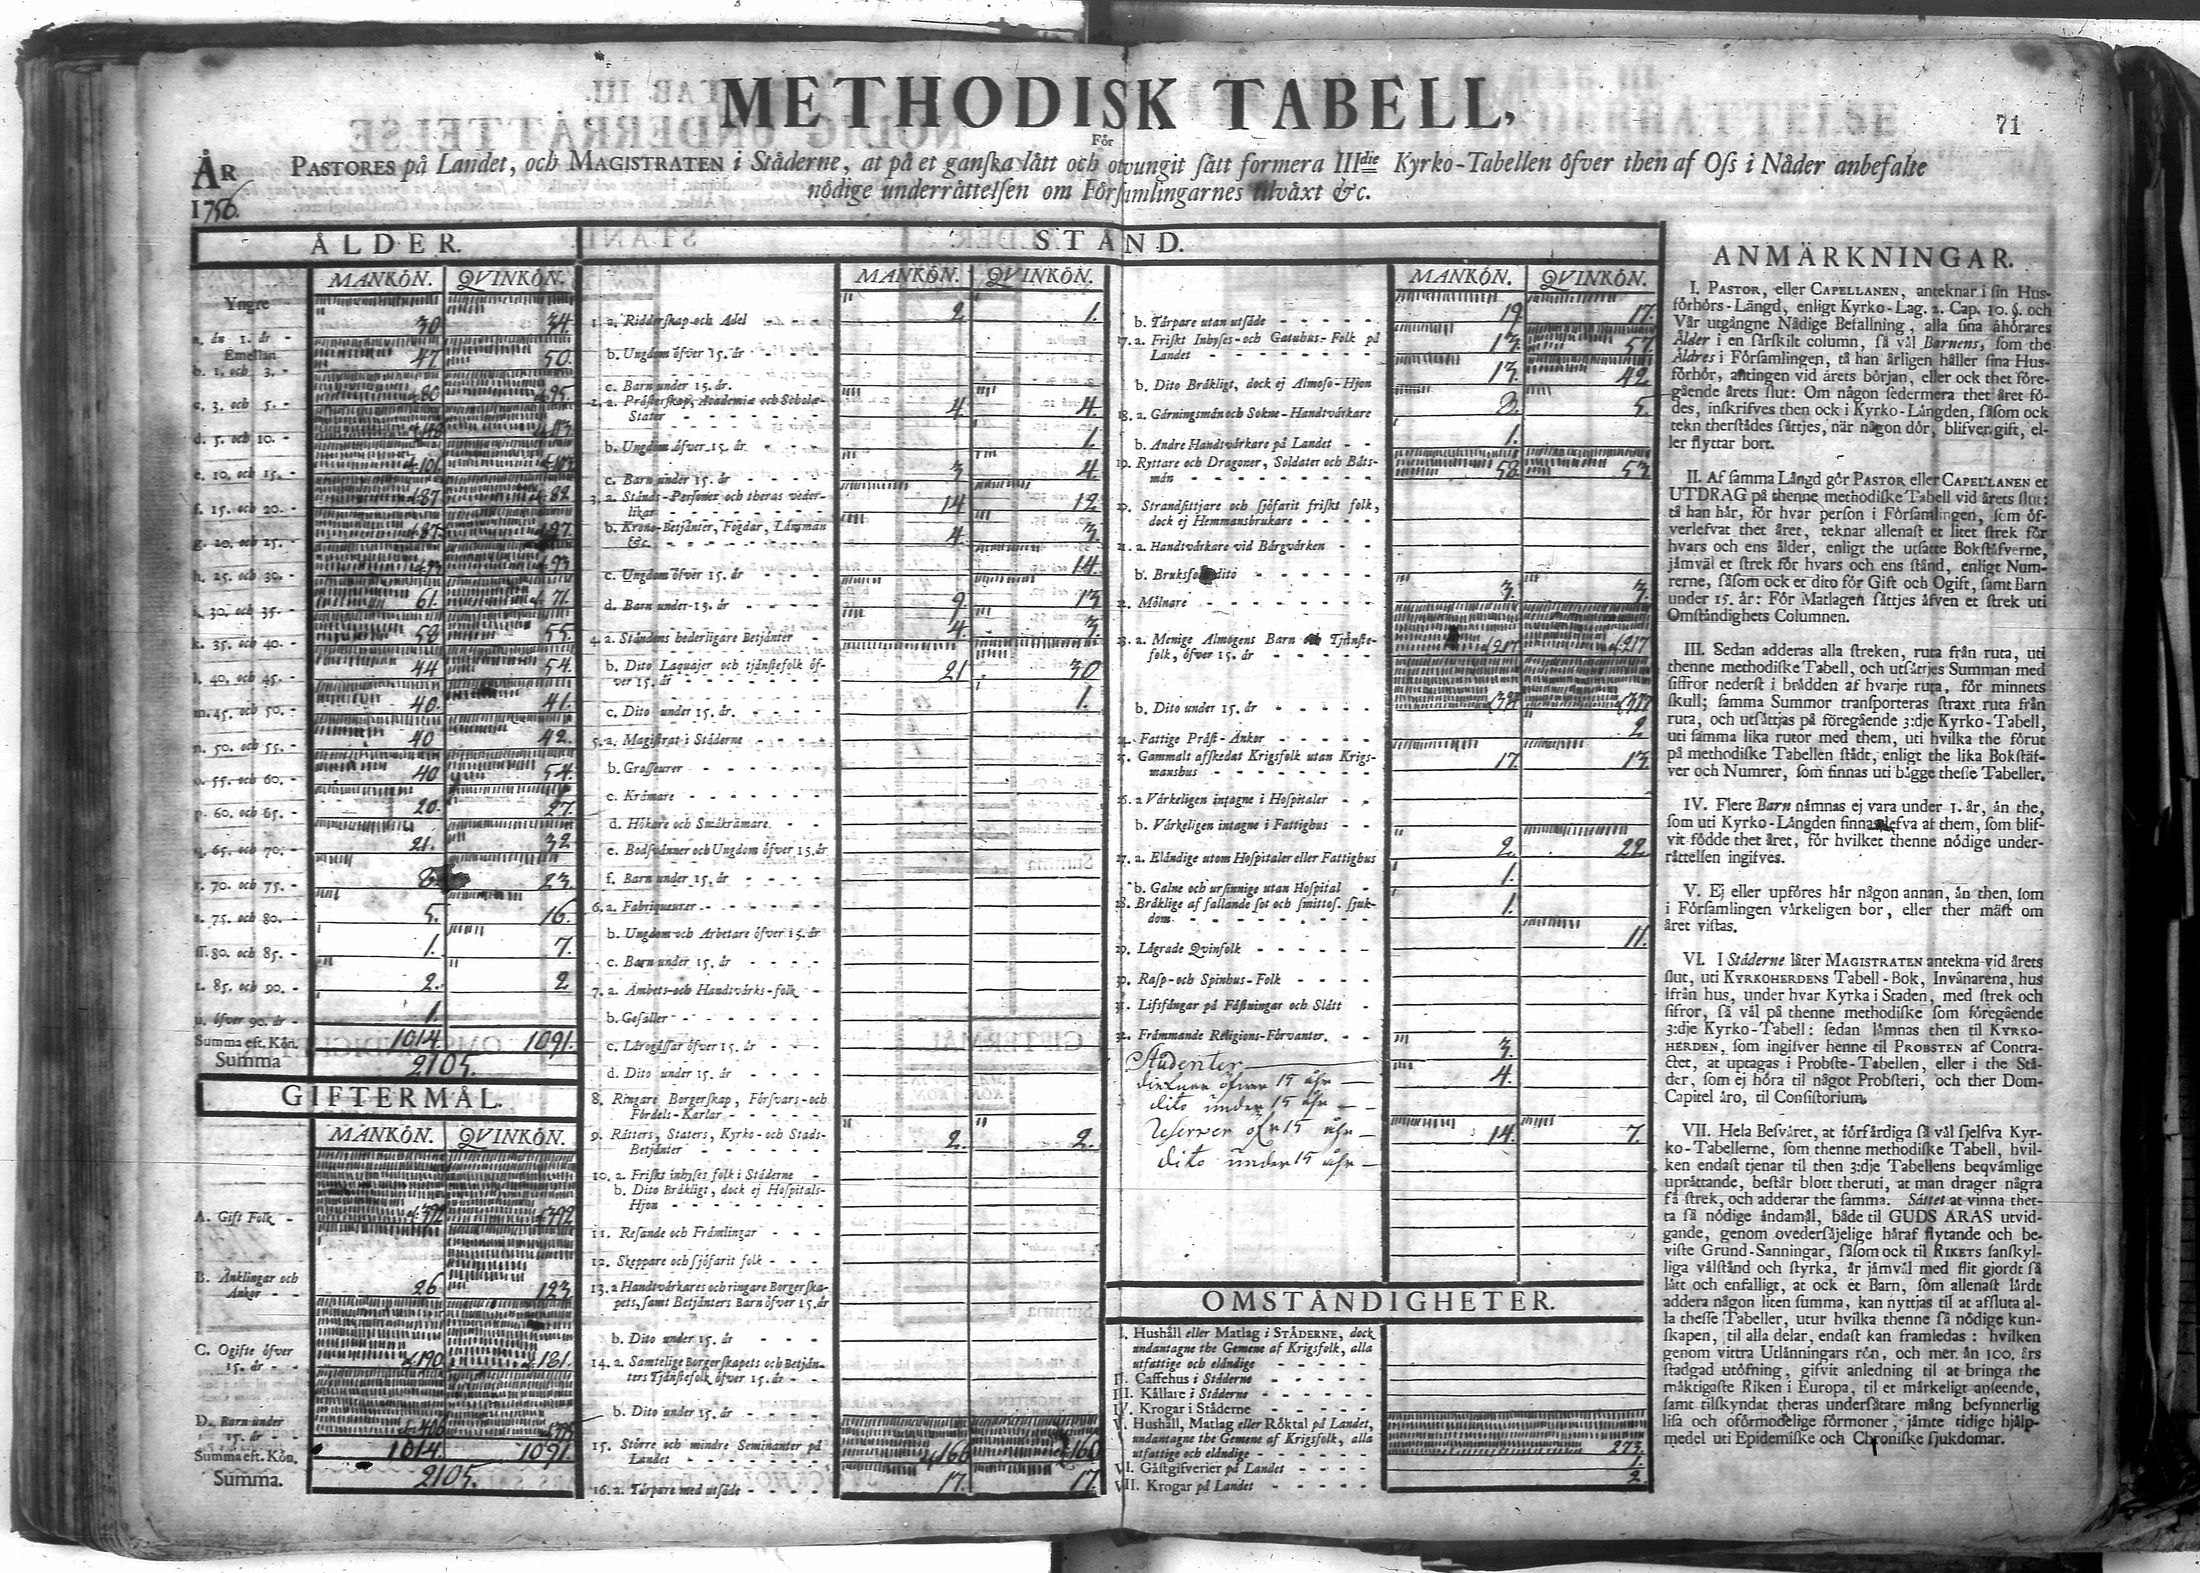 METHODISK TABELL,
För
71
ÅR
1756.
PASTORES på Landet, och MAGISTRATEN i Ståderne, at på et ganska lått och otvungit sått formera IIIdie Kyrko-Tabellen öfver then af Oss i Nåder anbefalte
nödige underråttelsen om Församlingarnes tilvåxt &c.
ÅLDER.
MANKÖN. QVINKÖN.
Yngre
a. än 1. år - 30 34.
Emellan
b. 1. och 3. - 47. 50.
c. 3. och 5. - 80 95.
d. 5. och 10. -
e. 10. och 15. - 101. 103
f. 15. och 20. - 87 82
g. 20. och 25. - 87. 97.
h. 25. och 30. - 93 93
i. 30. och 35. - 61. 71.
k. 35. och 40. - 58 55.
l. 40. och 45. - 44 54.
m. 45. och 50. - 40. 41.
n. 50. och 55. - 40 42.
o. 55. och 60. - 40 54.
p. 60. och 65. - 20. 27.
q. 65. och 70. - 21. 32
r. 70. och 75. - 8. 23.
s. 75. och 80. - 5. 16.
ss. 80. och 85. - 1. 7.
t. 85. och 90. - 2. 2
u. öfver 90. år - 1.
Summa eft. Kön. 1014. 1091.
Summa 2105.
GIFTERMÅL.
MANKÖN. QVINKÖN.
A. Gift Folk - 392 392
B. Änklingar och
Änkor - - 26 123
C. Ogifte öfver
15. år - - 190 181.
D. Barn under
15. år - - 406 395
Summa eft. Kön. 1014. 1091
Summa. 2105.
STÅND.
MANKÖN. QVINKÖN.
1. a. Ridderskap och Adel - - - 2. 1.
b. Ungdom öfver 15. år - - - -
c. Barn under 15. år.
2. a. Pråsterskap, Academiæ och Scholæ-
Stater - - - - - - - 4. 4.
b. Ungdom öfver 15. år - - - - 1.
c. Barn under 15. år - - - - 3 4.
3. a. Stånds-Personer och theras veder-
likar - - - - - - - 14 12
b. Krono-Betjånter, Fogdar, Länsmån
&c. - - - - - - - 4. 3.
c. Ungdom öfver 15. år - - - - 14.
d. Barn under 15. år - - - - 9. 13
4. a. Ståndens hederligare Betjånter - 4. 3.
b. Dito Laquajer och tjånstefolk öf-
ver 15. år - - - - - - 21 30
c. Dito under 15. år. - - - - 1.
5. a. Magistrat i Ståderne - - - -
b. Grosseurer - - - - - -
c. Kråmare - - - - - - -
d. Hökare och Småkråmare. - - -
e. Bodsvänner och Ungdom öfver 15. år
f. Barn under 15. år - - - -
6. a. Fabriqueurer - - - - - -
b. Ungdom och Arbetare öfver 15. år
c. Barn under 15. år - - - -
7. a. Ämbets-och Handtvårks-folk -
b. Gesåller - - - - - - -
c. Lårogåssar öfver 15. år - - -
d. Dito under 15. år - - - -
8. Ringare Borgerskap, Försvars-och
Fördels-Karlar - - - - -
9. Råtters, Staters, Kyrko-och Stads-
Betjånter - - - - - - 2. 2.
10. a. Friskt inhyses folk i Ståderne -
b. Dito Bråkligt, dock ej Hospitals-
Hjon - - - - - - -
11. Resande och Fråmlingar - - -
12. Skeppare och sjöfarit folk - - -
13. a Handtvårkares och ringare Borgerska-
pets, samt Betjånters Barn öfver 15. år
b. Dito under 15. år - - -
14. a. Samtelige Borgerskapets och Betjån-
ters Tjånstefolk öfver 15. år - -
b. Dito under 15. år - - - -
15. Större och mindre Seminanter på
Landet - - - - - - - 166 166
16. a. Torpare med utsåde - - - - 17. 17.
MANKÖN. QVINKÖN.
b. Torpare utan utsåde - - - - - 19 17.
17. a. Friskt Inhyses-och Gatuhus-Folk på
Landet - - - - - - - - 13. 57.
b. Dito Bråkligt, dock ej Almoso-Hjon 13. 42
18. a. Gårningsmån och Sokne-Handtvårkare 5.
b. Andre Handtvårkare på Landet - - 1.
19. Ryttare och Dragoner, Soldater och Båts-
mån - - - - - - - - 58 53
20. Strandsittjare och sjöfarit friskt folk,
dock ej Hemmansbrukare - - - -
21. a. Handtvårkare vid Bårgvårken - -
b. Bruksfolk dito - - - - - -
22. Mölnare - - - - - - - - 3. 3.
23. a. Menige Almogens Barn och Tjånste-
folk, öfver 15. år - - - - - 217 217
b. Dito under 15. år - - - - -
24. Fattige Pråst-Änkor - - - - - 2
25. Gammalt afskedat Krigsfolk utan Krigs-
manshus - - - - - - - - 17. 13.
26. a Vårkeligen intagne i Hospitaler - -
b. Vårkeligen intagne i Fattighus - -
27. a. Elåndige utom Hospitaler eller Fattighus 2. 22
b. Galne och ursinnige utan Hospital - 1.
28. Bråklige af fallande sot och smittos. sjuk-
dom - - - - - - - - 1.
29. Lågrade Qvinfolk - - - - - - 11.
30. Rasp-och Spinhus-Folk - - - -
31. Lifsfångar på Fåstningar och Slått -
32. Fråmmande Religions-Förvanter. - -
Studenter 3.
öfver 15 åhr 4.
dito under 15 åhr
öfr 15 åhr 14. 7.
dito under 15 åhr
OMSTÅNDIGHETER.
I. Hushåll eller Matlag i STÅDERNE, dock
undantagne the Gemene af Krigsfolk, alla
utfattige och elåndige - - - - -
II. Caffehus i Ståderne - - - - -
III. Kållare i Ståderne - - - - -
IV. Krogar i Ståderne - - - - -
V. Hushåll, Matlag eller Röktal på Landet,
undantagne the Gemene af Krigsfolk, alla
utfattige och elåndige - - - - - 273.
VI. Gåstgifverier på Landet - - - - 1.
VII. Krogar på Landet - - - - - 2.
ANMÄRKNINGAR.
I. PASTOR, eller CAPELLANEN, anteknar i sin Hus-
förhörs-Långd, enligt Kyrko-Lag. 2. Cap. 10. §. och
Vår utgångne Nådige Befallning, alla sina åhörares
Ålder i en sårskilt column, så vål Barnens, som the
Åldres i Församlingen, tå han årligen håller sina Hus-
förhör, antingen vid årets början, eller ock thet före-
gående årets slut: Om någon sedermera thet året fö-
des, inskrifves then ock i Kyrko-Långden, såsom ock
tekn therstådes såttjes, når någon dör, blifver gift, el-
ler flyttar bort.
II. Af samma Långd gör PASTOR eller CAPELLANEN et
UTDRAG på thenne methodiske Tabell vid årets slut:
tå han hår, för hvar person i Församlingen, som öf-
verlefvat thet året, teknar allenast et litet strek för
hvars och ens ålder, enligt the utsatte Bokståfverne,
jåmvål et strek för hvars och ens stånd, enligt Num-
rerne, såsom ock et dito för Gift och Ogift, samt Barn
under 15. år: För Matlagen såttjes åfven et strek uti
Omståndighets Columnen.
III. Sedan adderas alla streken, ruta från ruta, uti
thenne methodiske Tabell, och utsåttjes Summan med
siffror nederst i brådden af hvarje ruta, för minnets
skull; samma Summor transporteras straxt ruta från
ruta, och utsåttjas på föregående 3:dje Kyrko-Tabell,
uti samma lika rutor med them, uti hvilka the förut
på methodiske Tabellen stådt, enligt the lika Bokståf-
ver och Numrer, som finnas uti bågge thesse Tabeller.
IV. Flere Barn nåmnas ej vara under 1. år, ån the,
som uti Kyrko-Långden finnas lefva af them, som blif-
vit födde thet året, för hvilket thenne nödige under-
råttelsen ingifves.
V. Ej eller upföres hår någon annan, ån then, som
i Församlingen vårkeligen bor, eller ther måst om
året vistas.
VI. I Ståderne låter MAGISTRATEN antekna vid årets
slut, uti KYRKOHERDENS Tabell-Bok, Invånarena, hus
ifrån hus, under hvar Kyrka i Staden, med strek och
sifror, så vål på thenne methodiske som föregående
3:dje Kyrko-Tabell: sedan låmnas then til KYRKO-
HERDEN, som ingifver henne til PROBSTEN af Contra-
ctet, at uptagas i Probste-Tabellen, eller i the Stå-
der, som ej höra til något Probsteri, och ther Dom-
Capitel åro, til Consistorium.
VII. Hela Besvåret, at förfårdiga så vål sjelfva Kyr-
ko-Tabellerne, som thenne methodiske Tabell, hvil-
ken endast tjenar til then 3:dje Tabellens beqvåmlige
upråttande, består blott theruti, at man drager några
få strek, och adderar the samma. Såttet at vinna thet-
ta så nödige åndamål, både til GUDS ÄRAS utvid-
gande, genom ovedersåjelige håraf flytande och be-
viste Grund-Sanningar, såsom ock til RIKETS sanskyl-
liga vålstånd och styrka, år jåmvål med flit gjordt så
lått och enfalligt, at ock et Barn, som allenast lårdt
addera någon liten summa, kan nyttjas til at afsluta al-
la thesse Tabeller, utur hvilka thenne så nödige kun-
skapen, til alla delar, endast kan framledas: hvilken
genom vittra Utlånningars rön, och mer ån 100. års
stadgad utöfning, gifvit anledning til at bringa the
måktigaste Riken i Europa, til et mårkeligt anseende,
samt tilskyndat theras undersåtare mång besynnerlig
lisa och oförmodelige förmoner, jåmte tidige hjålp-
medel uti Epidemiske och Chroniske sjukdomar.